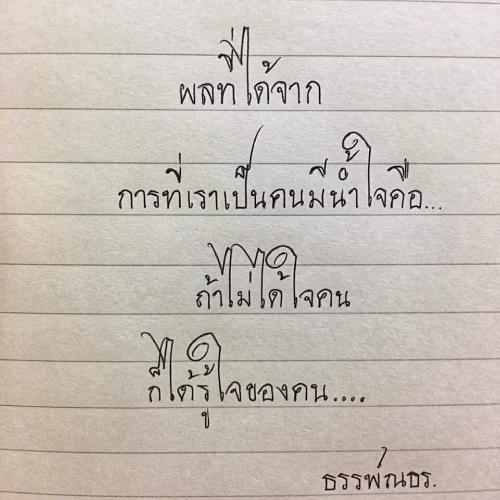 ผลที่ได้จาก
การที่เราเป็นคนมีน้ำใจคือ...
ถ้าไม่ได้ใจคน
ก็ได้รู้ใจของคน....
ธรรพ์ณธร.